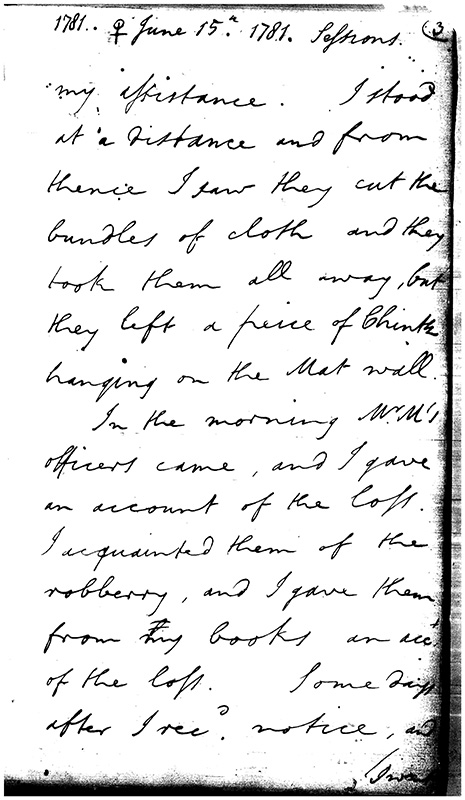 1781. ♀ June 15th. 1781. Sessions. (3
my assistance. I stood
at a distance and from
thence I saw they cut the
bundles of cloth and they
took them all away, but
they left a peice of Chintz
hanging on the Mat wall.
In the morning Mr. M's
officers came, and I gave
an account of the loss.
I acquainted them of the
robberry, and I gave them
from my books an acct.
of the loss. Some days
after I recd. notice, and
I went